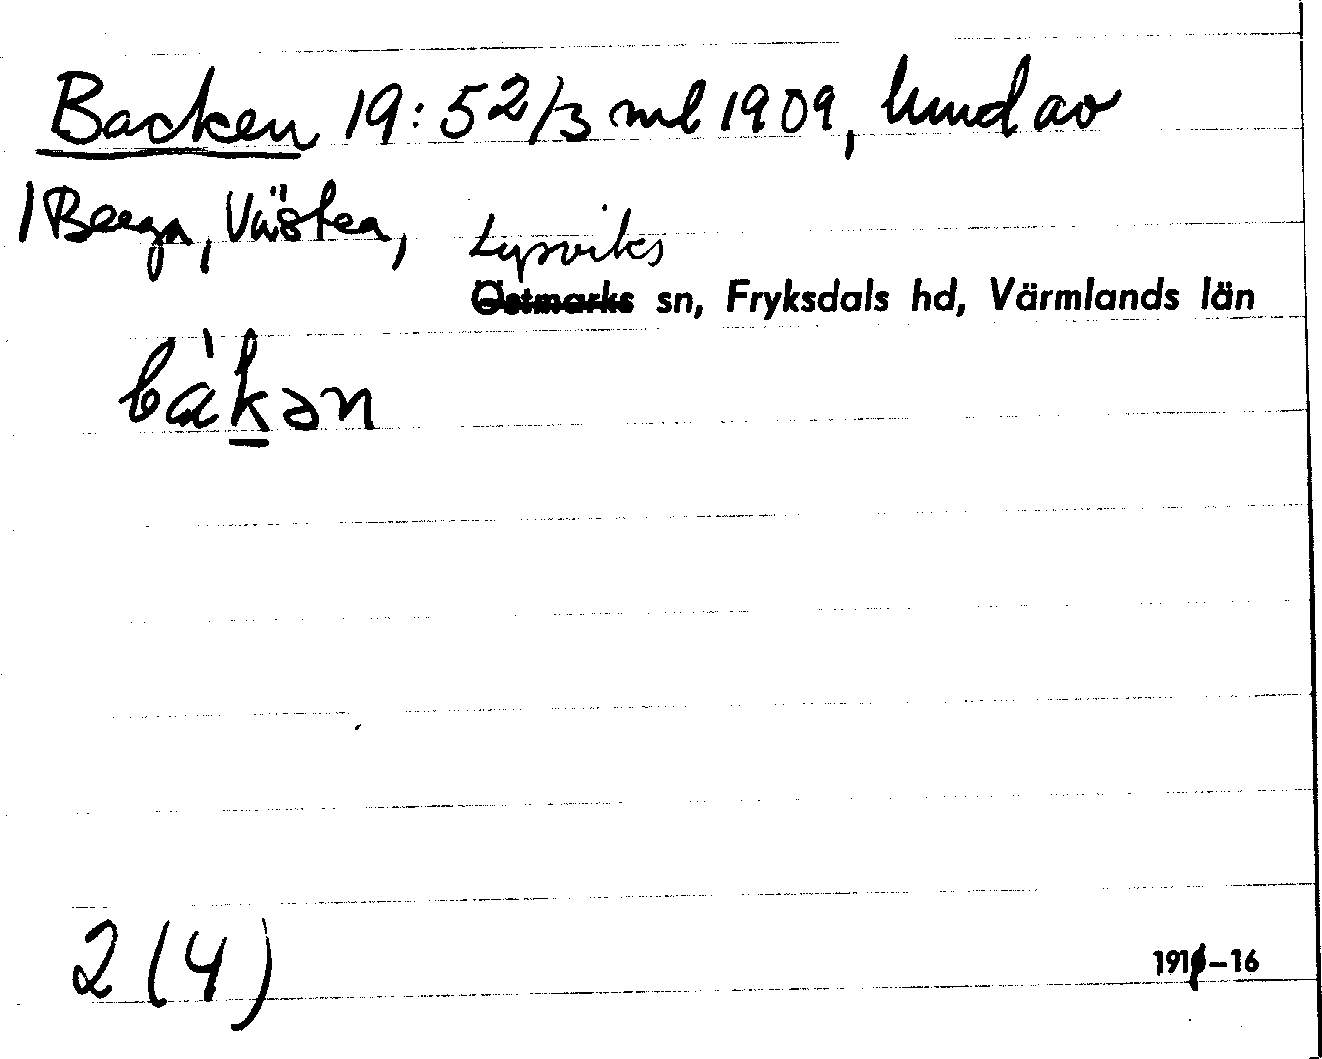 Backen 19:52/3 ml 1909, hmd av
/Berga, Västra,
Lysviks
Östmarks sn, Fryksdals hd, Värmlands län
bàkən
2 (4)
191 -16